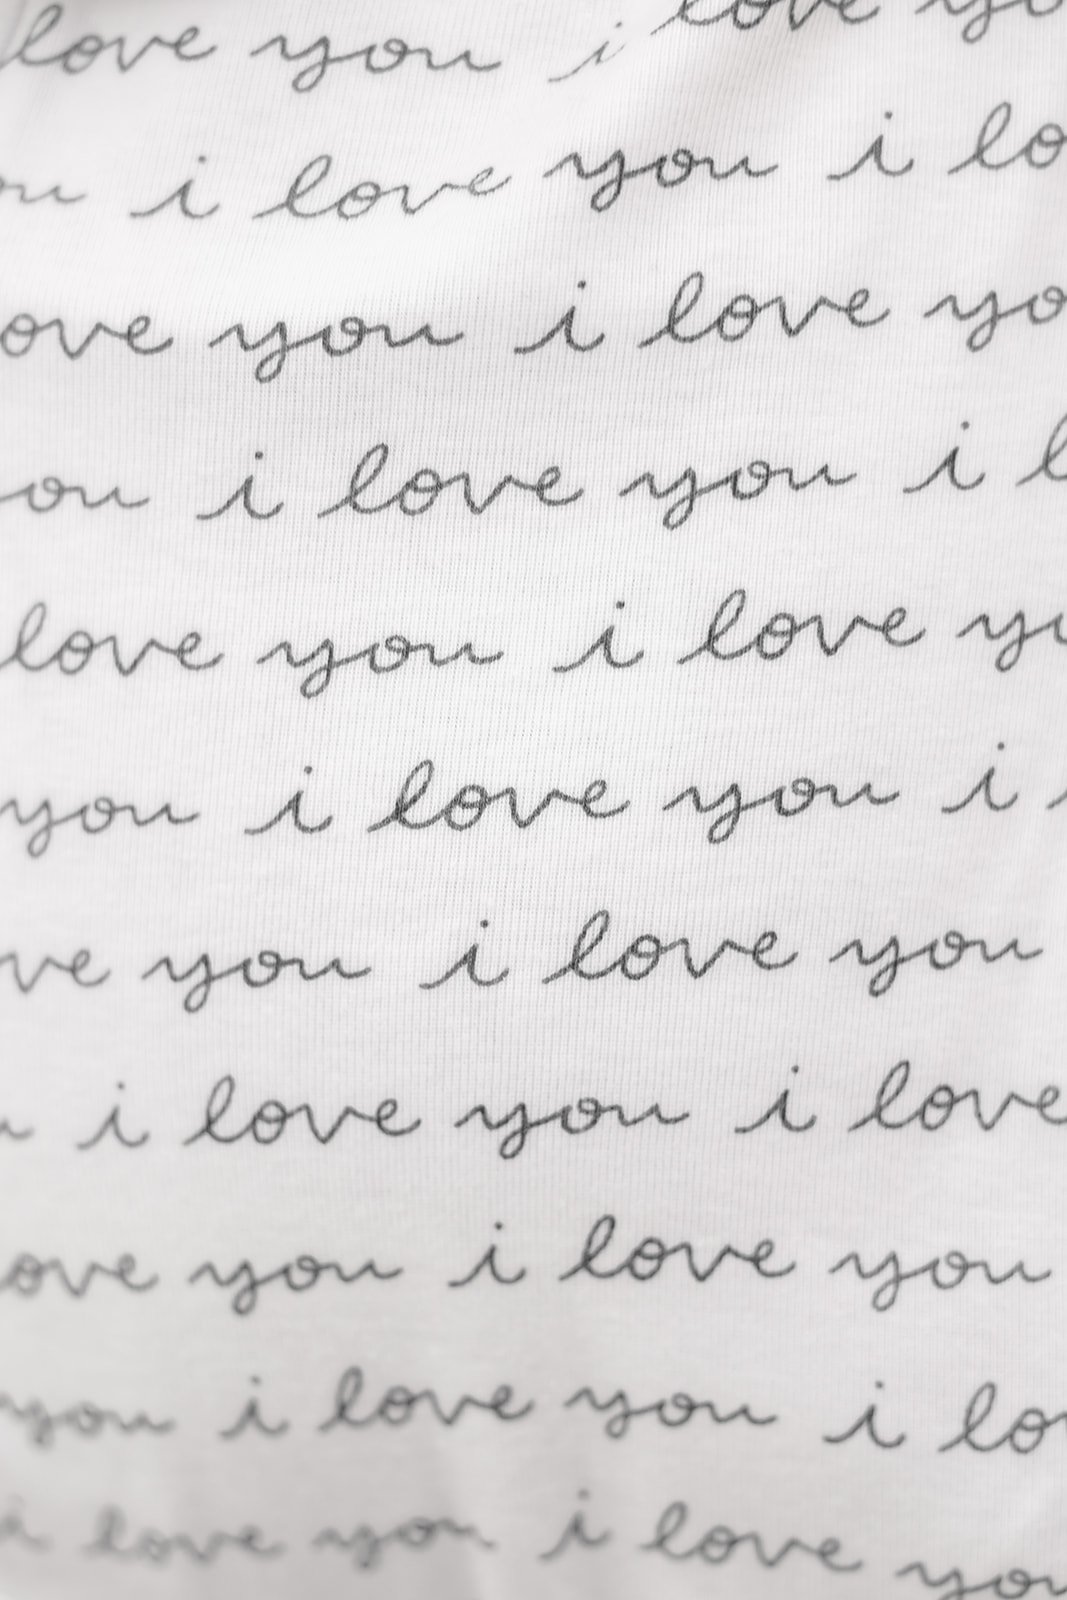 love you i love yo
ou i love you i lo
ove you i love yo
ou i love you i l
love you i love yo
you i love you i
ve you i love you
u i love you i love
ove you i love you
you i love you i lo
i love you i love you